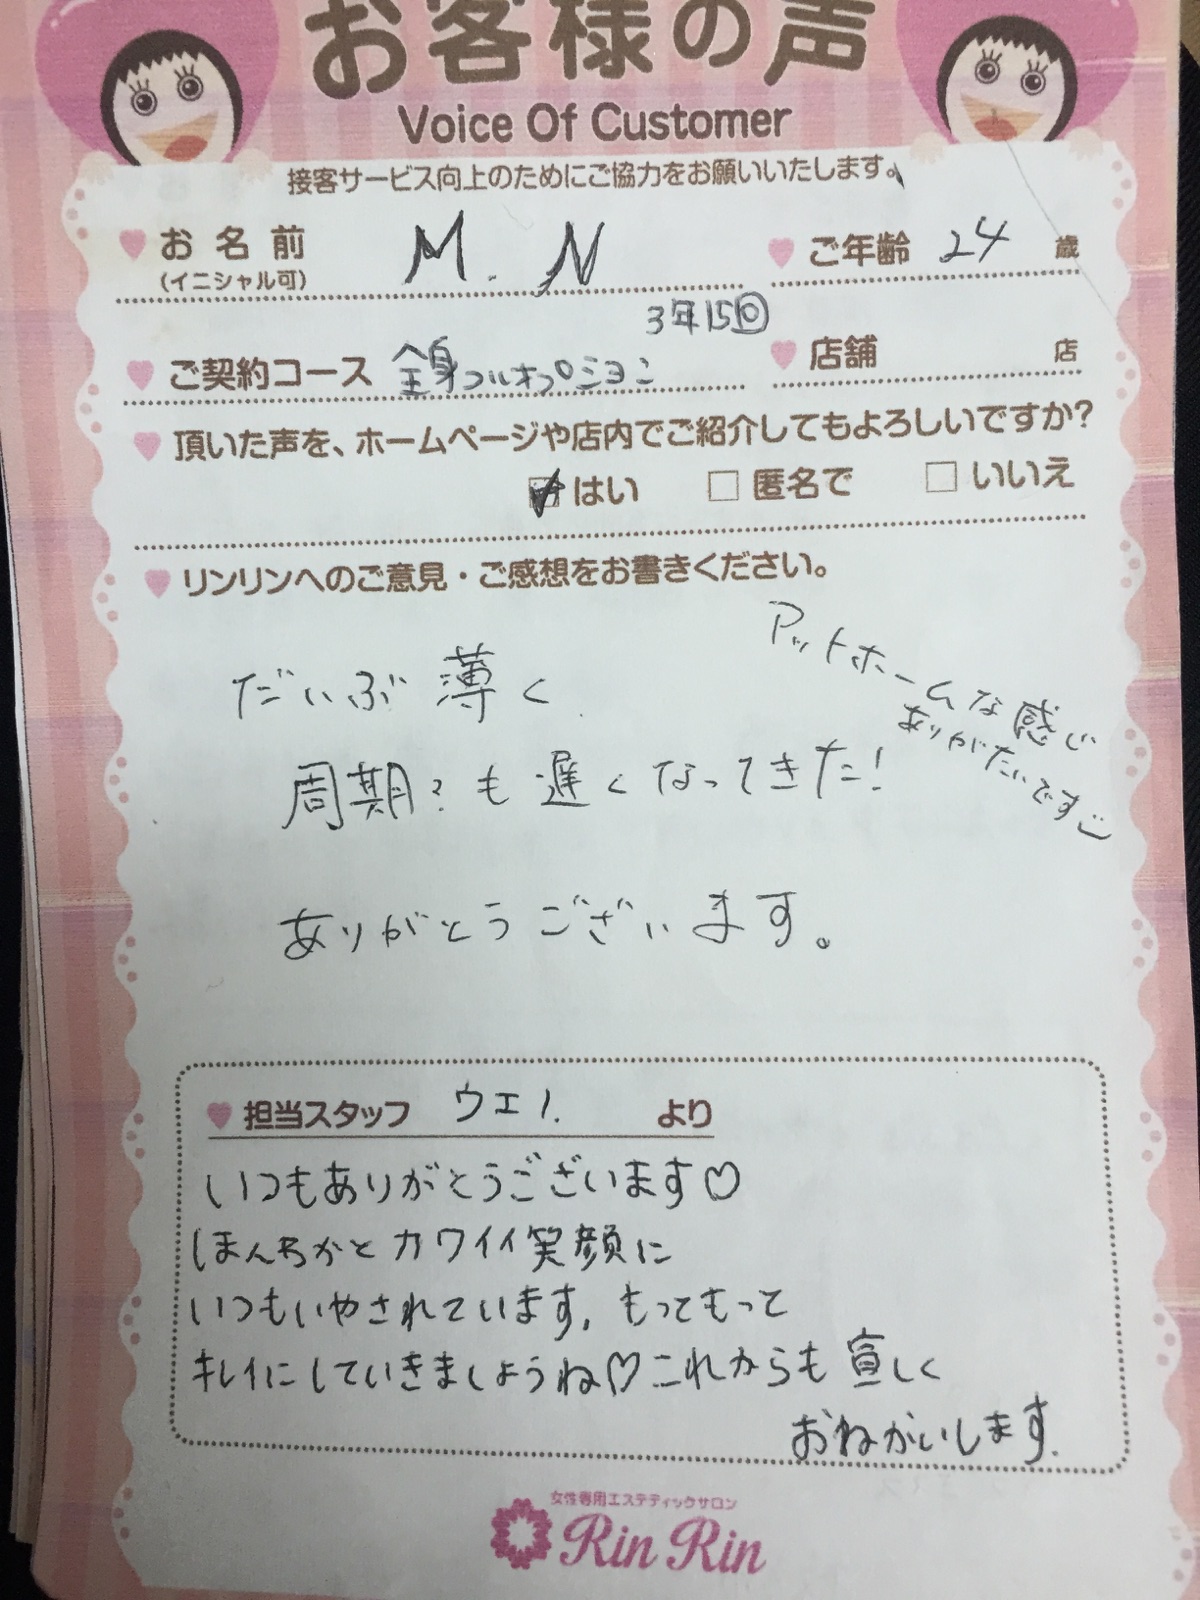 お客様の声
Voice Of Customer
接客サービス向上のためにご協力をお願いいたします。
お名前 M. N ご年齢 24 歳
(イニシャル可)
3年15回
ご契約コース 全身フルオプション 店舗 店
頂いた声を、ホームページや店内でご紹介してもよろしいですか?
はい 匿名で いいえ
リンリンへのご意見・ご感想をお書きください。
だいぶ薄く
周期?も遅くなってきた!
アットホームな感じ
ありがたいです
ありがとうございます。
担当スタッフ ウエノ より
いつもありがとうございます♡
ほんわかと カワイイ笑顔に
いつもいやされています。もってもって
キレイにしていきましょうね♡これからも宜しく
おねがいします.
女性専用エステティックサロン
Rin Rin